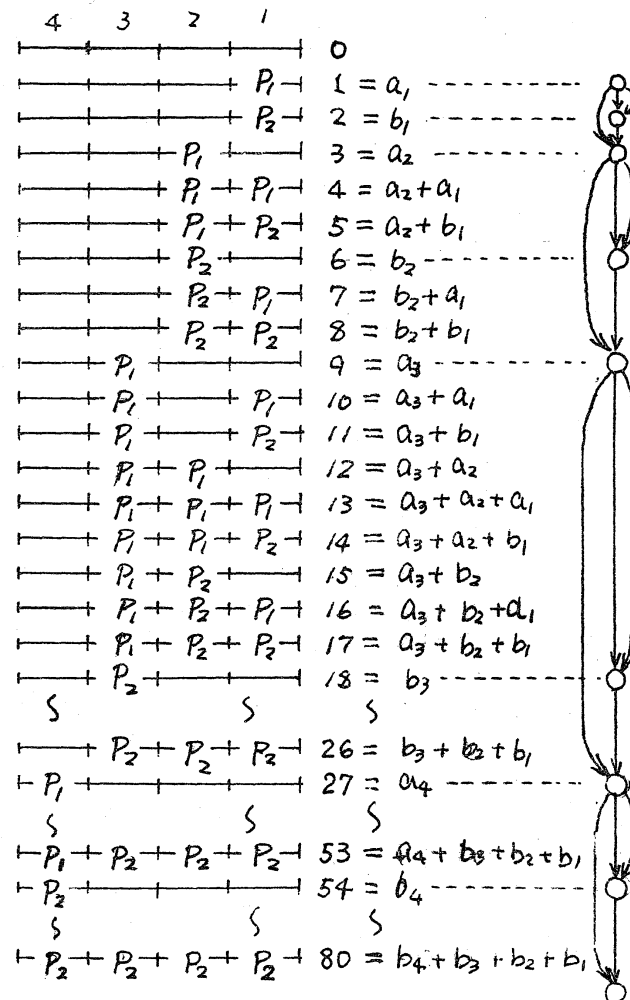 4 3 2 1
0
P₁ 1 = a₁
P₂ 2 = b₁
P₁ 3 = a₂
P₁ P₁ 4 = a₂+a₁
P₁ P₂ 5 = a₂+b₁
P₂ 6 = b₂
P₂ P₁ 7 = b₂+a₁
P₂ P₂ 8 = b₂+b₁
P₁ 9 = a₃
P₁ P₁ 10 = a₃+a₁
P₁ P₂ 11 = a₃+b₁
P₁ P₁ 12 = a₃+a₂
P₁ P₁ P₁ 13 = a₃+a₂+a₁
P₁ P₁ P₂ 14 = a₃+a₂+b₁
P₁ P₂ 15 = a₃+b₂
P₁ P₂ P₁ 16 = a₃+b₂+a₁
P₁ P₂ P₂ 17 = a₃+b₂+b₁
P₂ 18 = b₃
P₂ P₂ P₂ 26 = b₃+b₂+b₁
P₁ 27 = a₄
P₁ P₂ P₂ P₂ 53 = a₄+b₃+b₂+b₁
P₂ 54 = b₄
P₂ P₂ P₂ P₂ 80 = b₄+b₃+b₂+b₁